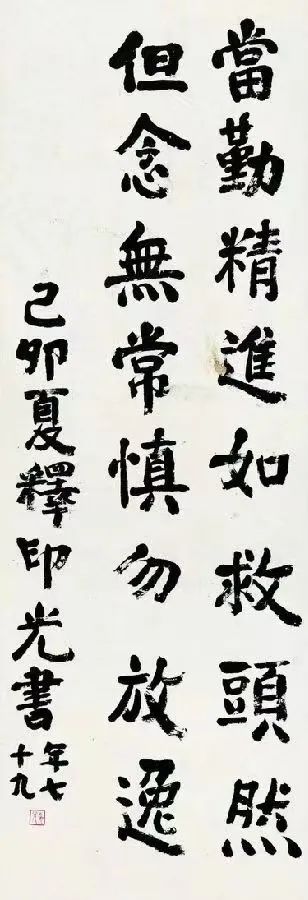 當勤精進如救頭然
但念無常慎勿放逸
己卯夏釋印光書
年七
十九